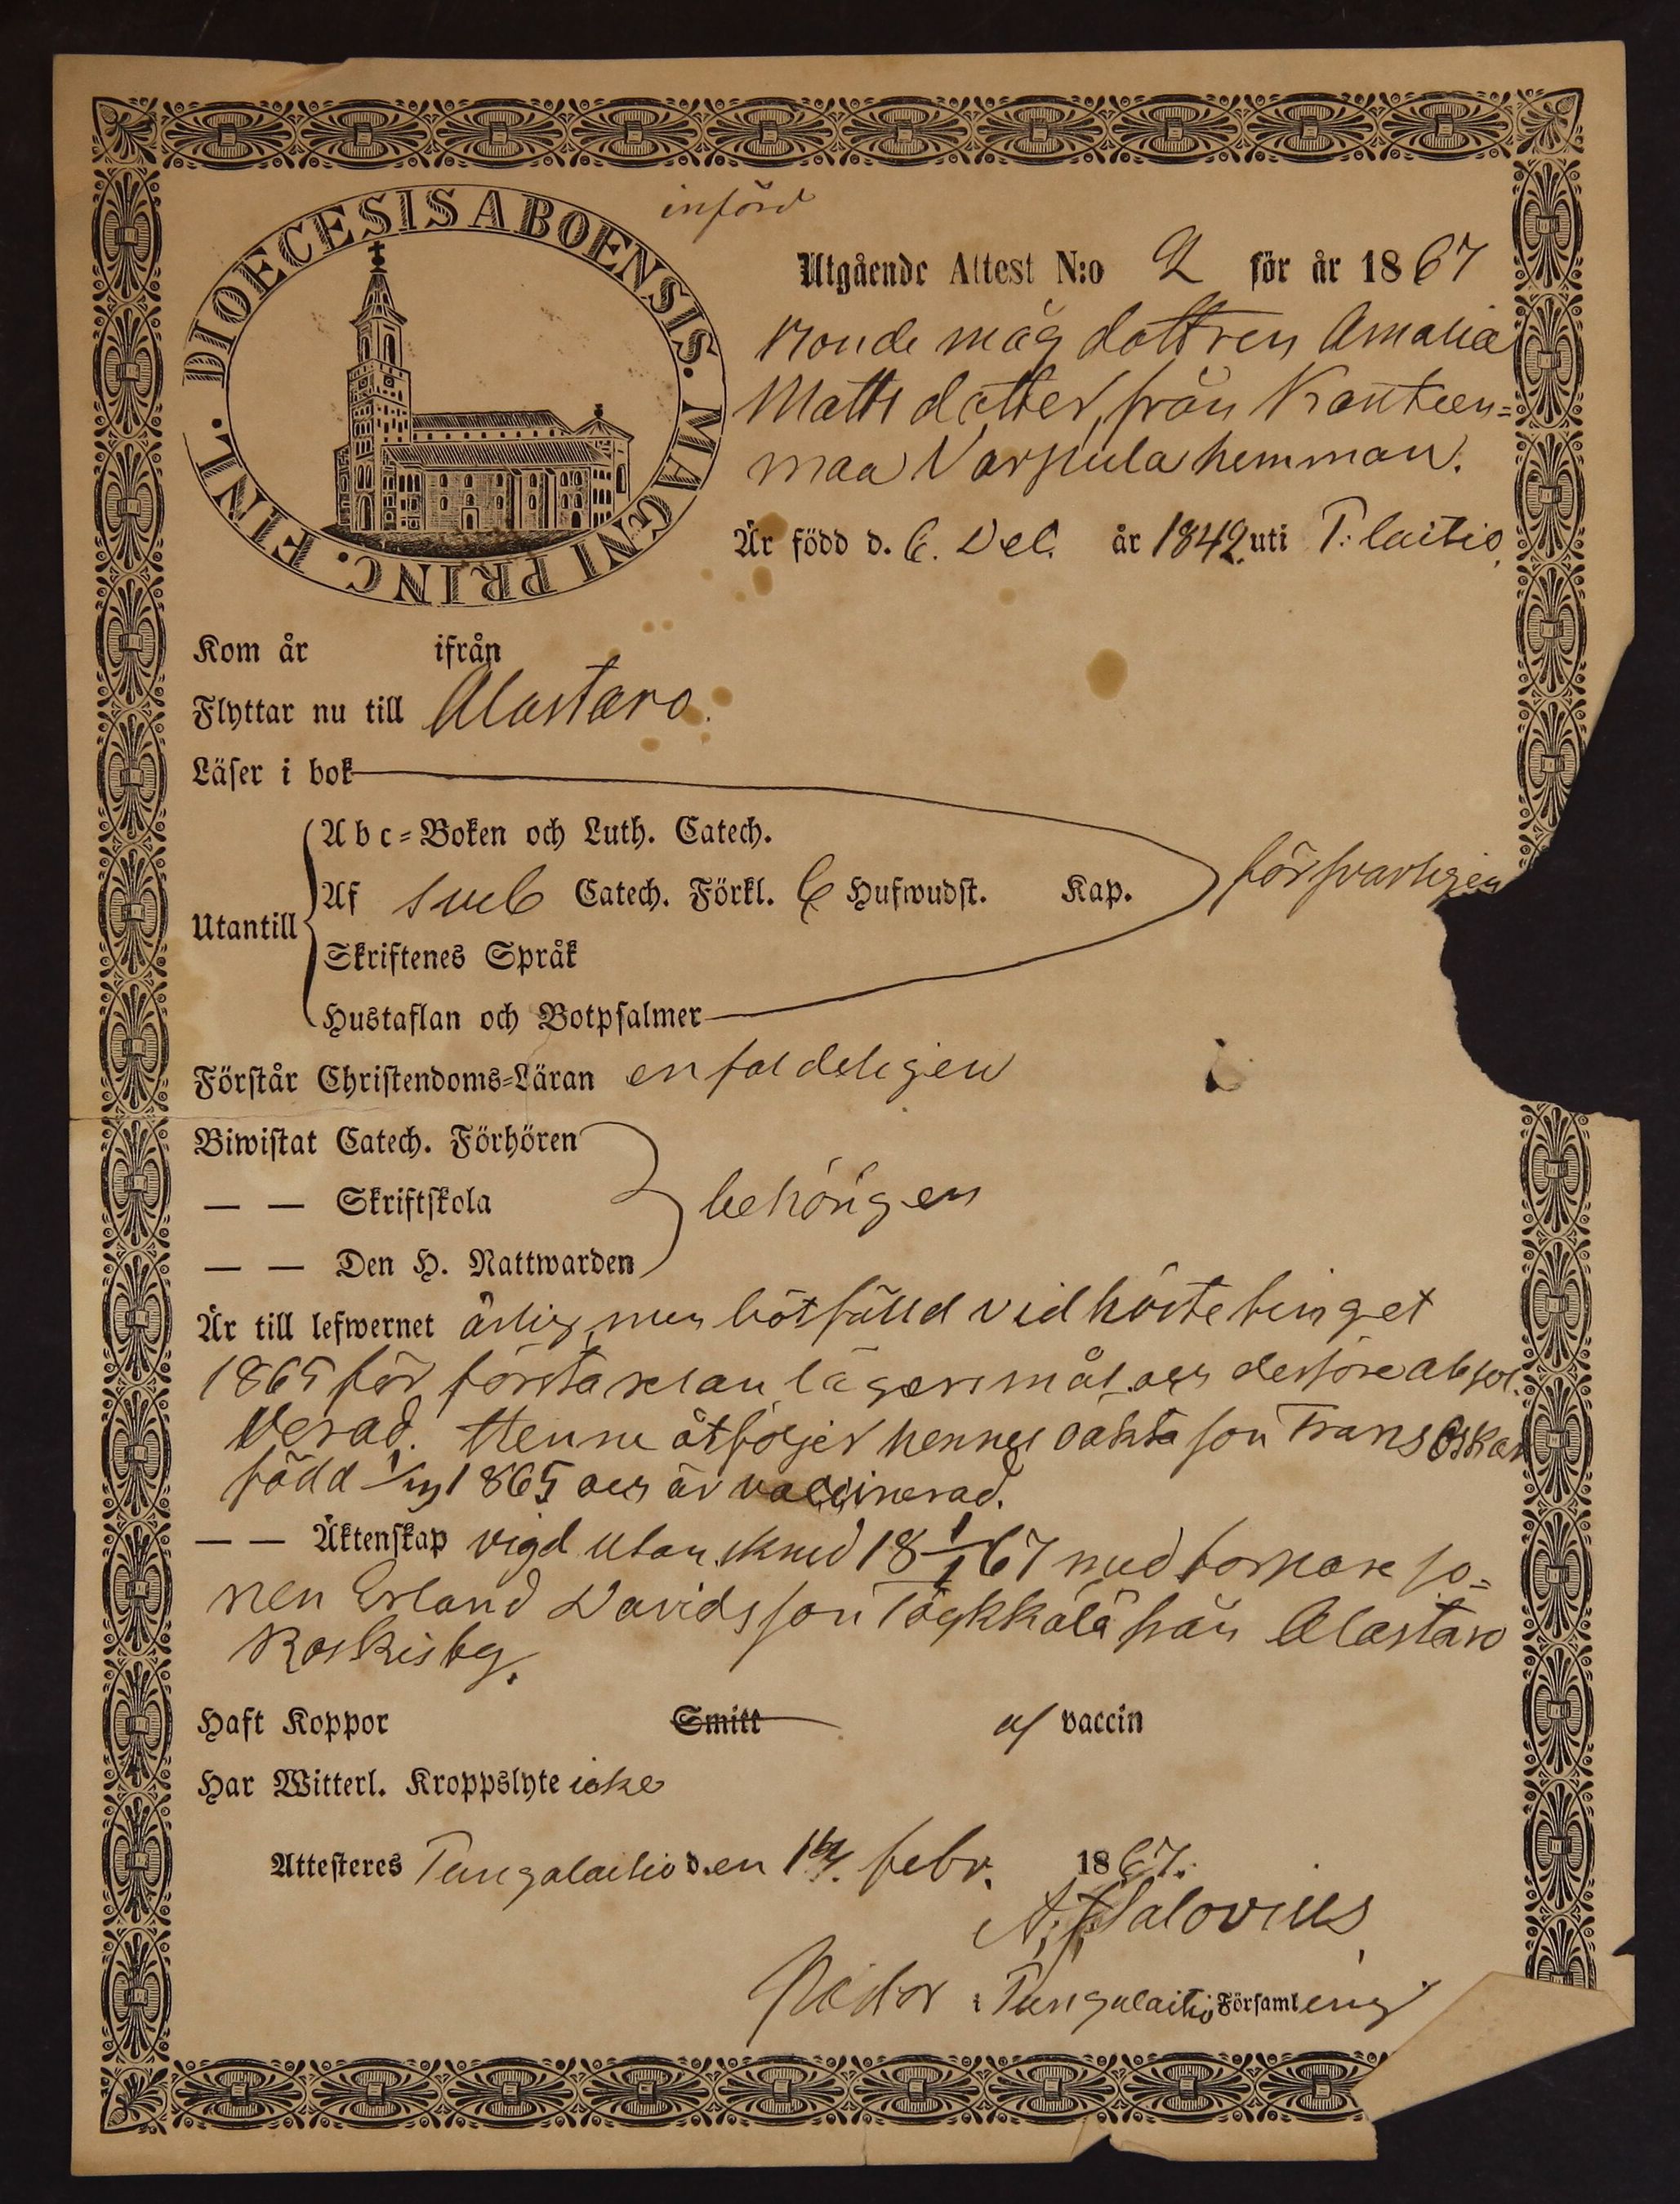 DIOECESIS ABOENSIS. MAGNI PRINC. FINL.
införd
Utgående Attest N:o 2 för år 1867
Bondemåg dottren Amalia
Matts dotter, från Kanteen=
maa Varpula hemman.
Är född d. 6. Dec. år 1842 uti P: laitio
Kom år ifrån
Flyttar nu till Alastaro.
Läser i bok
Utantill
Abc=Boken och Luth. Catech.
Af sveb Catech. Förkl. 6 Hufwudst. Kap. försvarligen
Skriftenes Språk
Hustaflan och Botpsalmer
Förstår Christendoms=Läran enfaldeligen
Biwistat Catech. Förhören
— — Skriftskola behörigen
— — Den H. Nattwarden
Är till lefwernet ärlig, men bötfälld vid hösttinget
1865 för första resan lägersmål och derföre absol.
verad. Henne åtföljer hennes oäkta son Frans Oskar
född 1865 och är vaccinerad.
— — Äktenskap vigd utan 18 1/1 67 med torpare so=
nen Erland Davidsson från Alastaro
Koskisby.
Haft Koppor Smitt af vaccin
Har Witterl. Kroppslyte icke
Attesteres Pungalaitio d.en febr. 1867.
A. J. Salovius
Pastor i Pungalaitio Församling